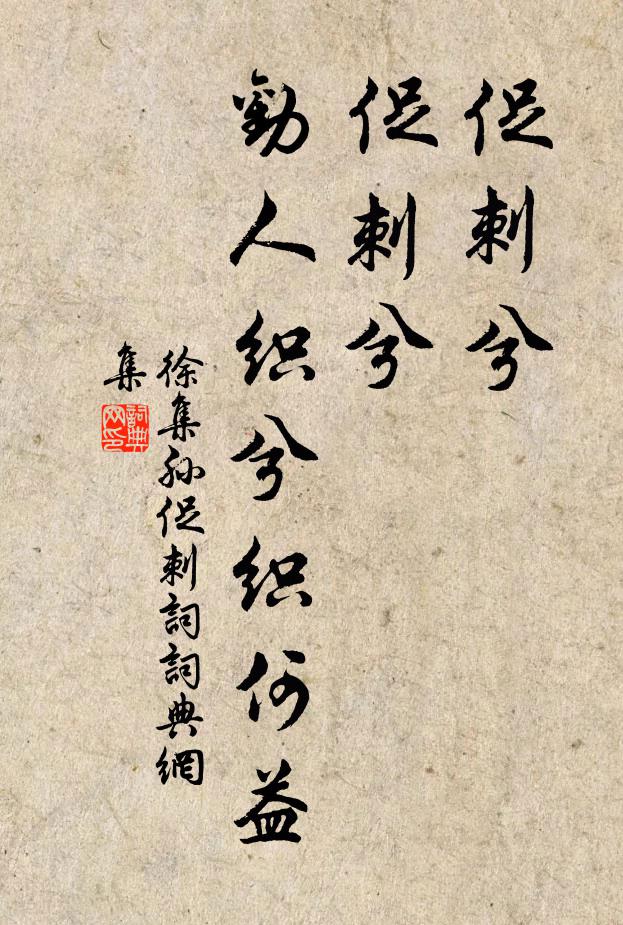 促刺兮
促刺兮
勸人织兮织何益
徐集孙促刺詞詞典網
集
詞典
网印